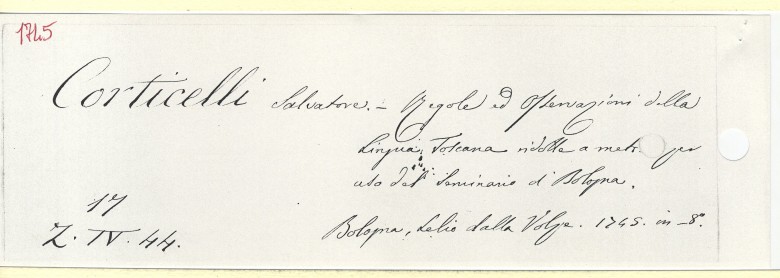 1745
Corticelli Salvatore. - Regole ed Osservazioni della
Lingua Toscana ridotte a met. per
uso del Seminario di Bologna.
17
Z. IV. 44.
Bologna, Lelio dalla Volpe. 1745. in-8°.